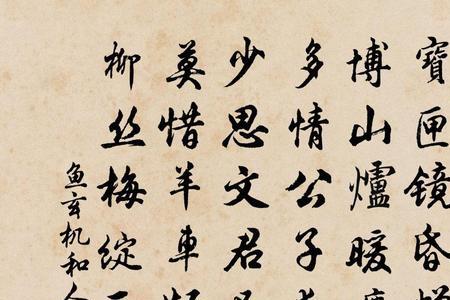 寶匣镜昏
博山爐暖
多情公子
少思文君
莫惜羊車
柳丝梅绽
鱼玄机和